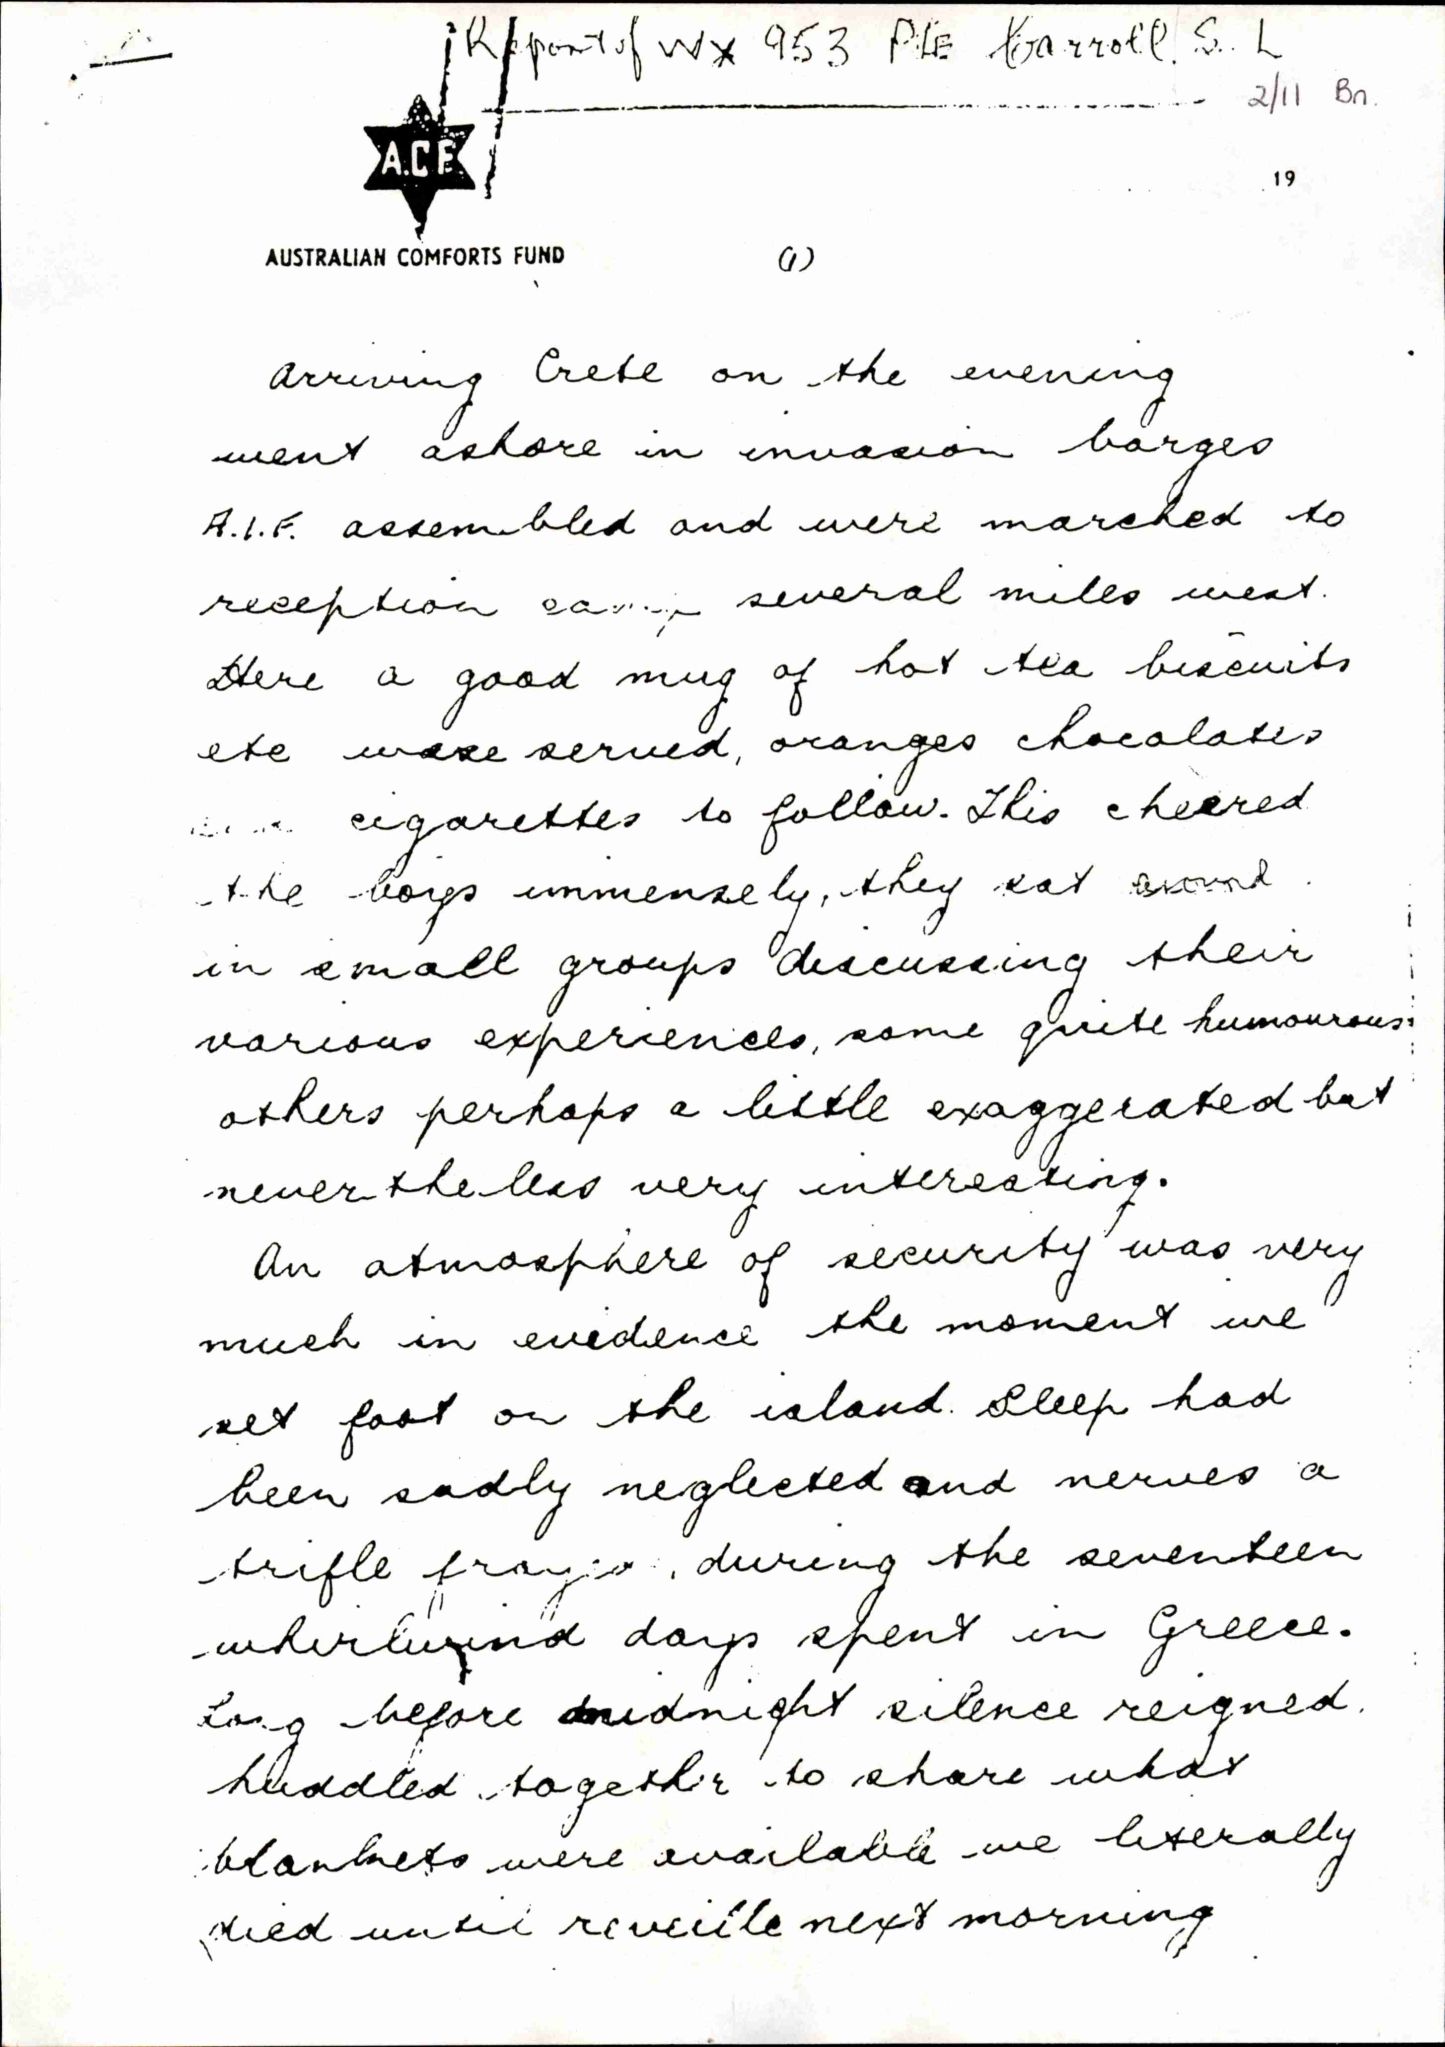 Report of WX 953 Pte Carroll. S. L
2/11 Bn.
A.C.F.
19
AUSTRALIAN COMFORTS FUND
(1)
Arriving Crete on the evening
went ashore in invasion barges
A.I.F. assembled and were marched to
reception camp several miles west.
Here a good mug of hot tea biscuits
etc were served, oranges chocolates
cigarettes to follow. This cheered
the boys immensely, they sat around
in small groups discussing their
various experiences, some quite humourous
others perhaps a little exaggerated but
never the less very interesting.
An atmosphere of security was very
much in evidence the moment we
set foot on the island. Sleep had
been sadly neglected and nerves a
trifle , during the seventeen
whirlwind days spent in Greece.
Long before midnight silence reigned.
huddled together to share what
blankets were available we literally
died until reveille next morning